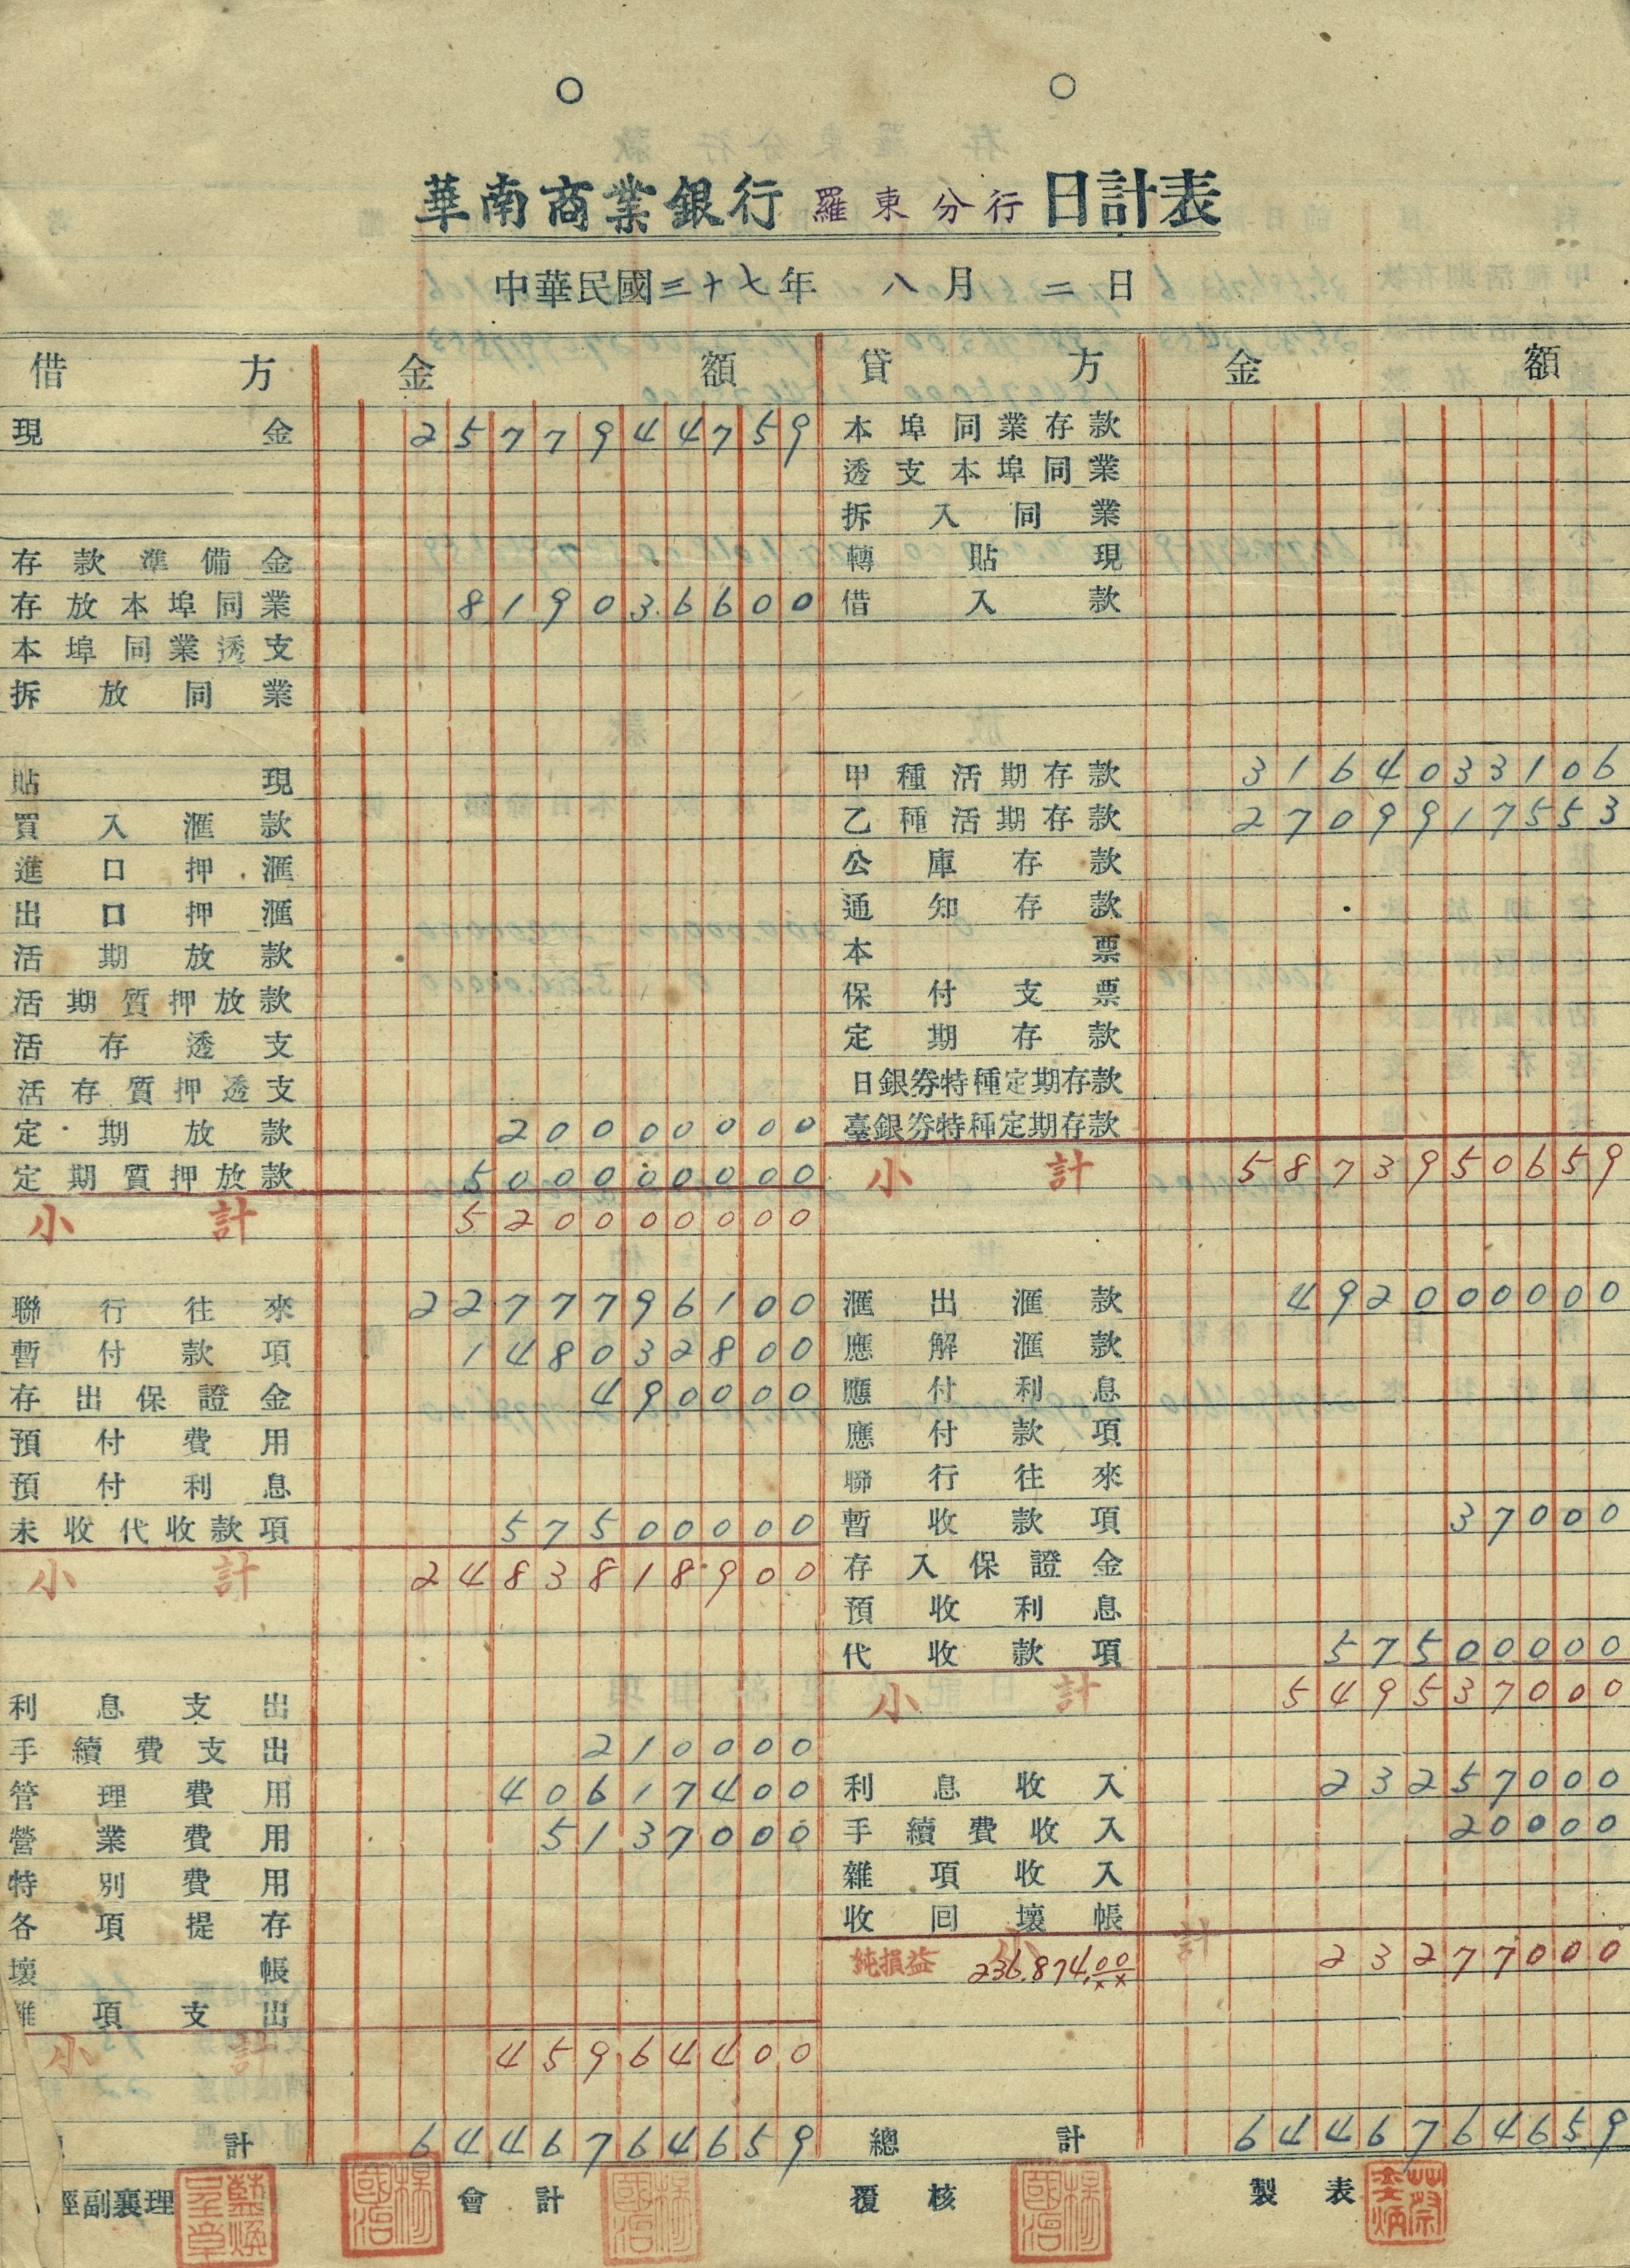 華南商業銀行 羅東分行 日計表
中華民國三十七年 八月 二日
借方 金額 貸方 金額
現金 2577944759 本埠同業存款
透支本埠同業
拆入同業
存款準備金 轉貼現
存放本埠同業 819036600 借入款
本埠同業透支
拆放同業
貼現 甲種活期存款 3164033106
買入滙款 乙種活期存款 2709917553
進口押滙 公庫存款
出口押滙 通知存款
活期放款 本票
活期質押放款 保付支票
活存透支 定期存款
活存質押透支 日銀券特種定期存款
定期放款 20000000 臺銀券特種定期存款
定期質押放款 500000000 小計 5873950659
小計 520000000
聯行往來 2277796100 滙出滙款 492000000
暫付款項 148032800 應解滙款
存出保證金 490000 應付利息
預付費用 應付款項
預付利息 聯行往來
未收代收款項 57500000 暫收款項 37000
小計 2483818900 存入保證金
預收利息
代收款項 57500000
利息支出 小計 549537000
手續費支出 210000
管理費用 40617400 利息收入 23257000
營業費用 5137000 手續費收入 20000
特別費用 雜項收入
各項提存 收回壞帳
壞帳 純損益 236.874.00 小計 23277000
項支出
小計 45964400
計 6446764659 總計 6446764659
經副襄理 會計 覆核 製表